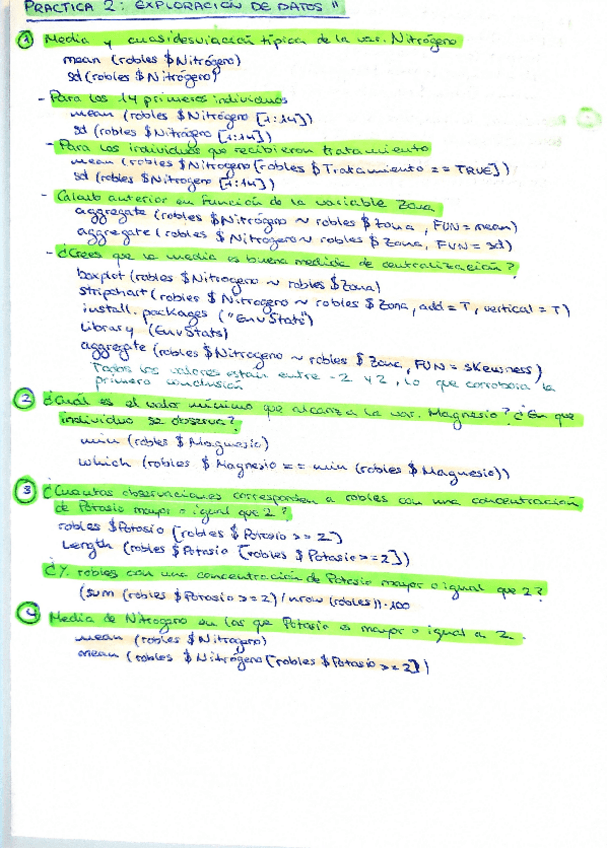 PRACTICA 2: EXPLORACIÓN DE DATOS "
① Media y cuasidesviación típica de la var. Nitrógeno
mean (robles $ Nitrógeno)
sd (robles $ Nitrógeno)
- Para los 14 primeros individuos
mean (robles $ Nitrógeno [1:14])
sd (robles $ Nitrógeno [1:14])
- Para los individuos que recibieron tratamiento
mean (robles $ Nitrogeno [robles $ Tratamiento == TRUE])
sd (robles $ Nitrogeno [1:14])
- Calculo anterior en función de la variable Zona
aggregate (robles $ Nitrógeno ~ robles $ Zona, FUN = mean)
aggregate (robles $ Nitrogeno ~ robles $ Zona, FUN = sd)
- ¿Crees que la media es buena medida de centralización?
boxplot (robles $ Nitrogeno ~ robles $ Zona)
stripchart (robles $ Nitrogeno ~ robles $ Zona, add = T, vertical = T)
install.packages ("EnvStats")
Library (EnvStats)
aggregate (robles $ Nitrogeno ~ robles $ Zona, FUN = skewness)
Todos los valores están entre -2 y 2, lo que corrobora la
primera conclusión
② ¿Cuál es el valor mínimo que alcanza la var. Magnesio? ¿En que
individuo se observa?
min (robles $ Magnesio)
which (robles $ Magnesio == min (robles $ Magnesio))
③ ¿Cuantas observaciones corresponden a robles con una concentración
de Potasio mayor o igual que 2?
robles $ Potasio [robles $ Potasio >= 2]
Length (robles $ Potasio [robles $ Potasio >= 2])
¿% robles con una concentración de Potasio mayor o igual que 2?
(sum (robles $ Potasio >= 2) / nrow (robles)) · 100
④ Media de Nitrogeno en los que Potasio es mayor o igual a 2.
mean (robles $ Nitrogeno)
mean (robles $ Nitrógeno [robles $ Potasio >= 2])